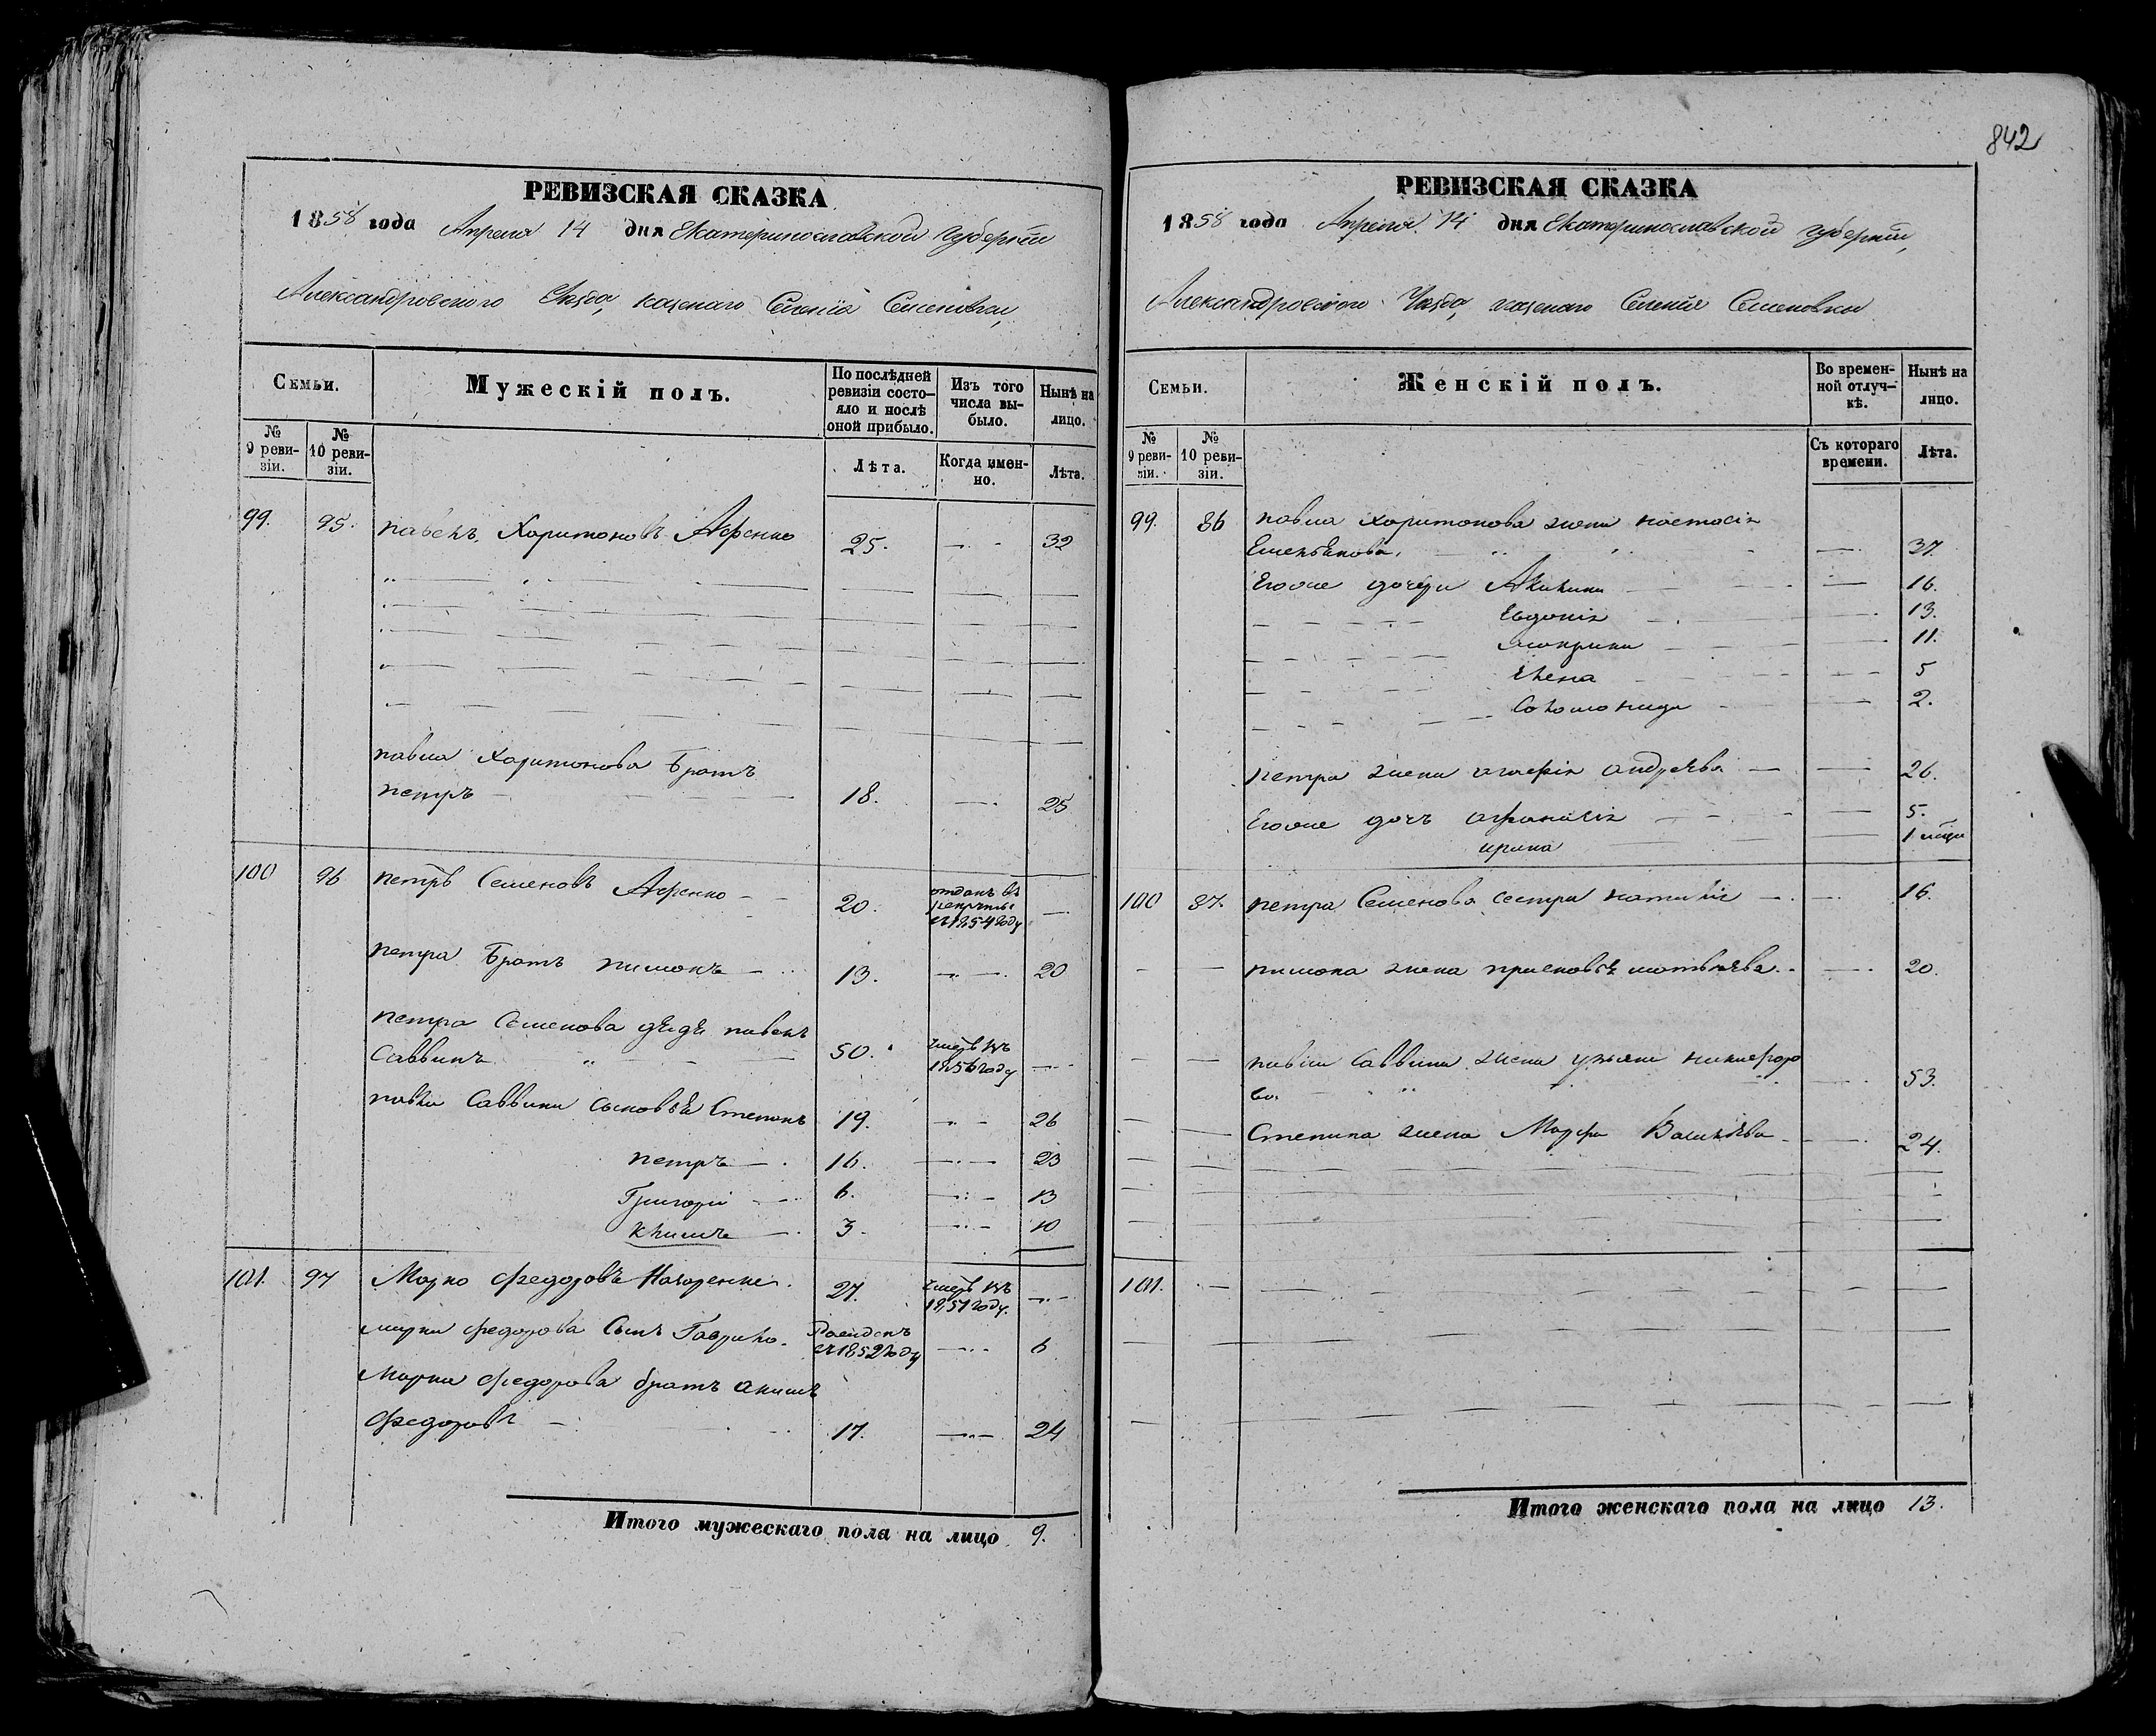 842
РЕВИЗСКАЯ СКАЗКА
1858 года Апреля 14 дня Екатеринославской губернiи
Александровского Уезда, казенаго Селенiя Семеновки,
Семьи.
Мужескiй полъ.
По послѣдней ревизiи состо-яло и послѣ оной прибыло.
Изъ того числа вы-было.
Нынѣ на лицо.
№ 9 реви-зiи.
№ 10 реви-зiи.
Лѣта.
Когда имен-но.
Лѣта.
99. 95. павелъ Харитоновъ 25. 32
павла Харитонова Братъ
петръ 18. 25
100 96 петръ Семеновъ 20. отданъ въ рекруты въ 1854 году
петра Братъ пимонъ 13. 20
петра Семенова дядя павелъ
Саввинъ 50. умеръ въ 1856 году
павла Саввина сыновья Степанъ 19. 26
петръ 16. 23
Григорiй 6. 13
климъ 3. 10
101. 97 Марко федоровъ 27. умеръ въ 1857 году.
марка федорова Сынъ Гаврило Рожденъ въ 1852 году 6
Марка федорова братъ акимъ
федоровъ 17. 24
Итого мужескаго пола на лицо 9.
РЕВИЗСКАЯ СКАЗКА
1858 года Апреля 14 дня Екатеринославской губернiи,
Александровского Уезда, казенаго Селенiя Семеновки
Семьи.
Женскiй полъ.
Во времен-ной отлуч-кѣ.
Нынѣ на лицо.
№ 9 реви-зiи.
№ 10 реви-зiи.
Съ котораго времени.
Лѣта.
99. 86 павла харитонова жена настасiя
Емельянова. 37.
Егоже дочери Акилина 16.
Евдокiя 13.
мокрина 11.
Елена 5
Соломонида 2.
петра жена агафiя андреева 26.
Егоже дочь афанасiя 5.
ирина 1
100 87. петра Семенова сестра наталiя 16.
пимона жена матвѣева 20.
павла Саввина жена ульяна никифоро
ва. 53.
Степана жена Марфа Васильева 24.
101.
Итого женскаго пола на лицо 13.